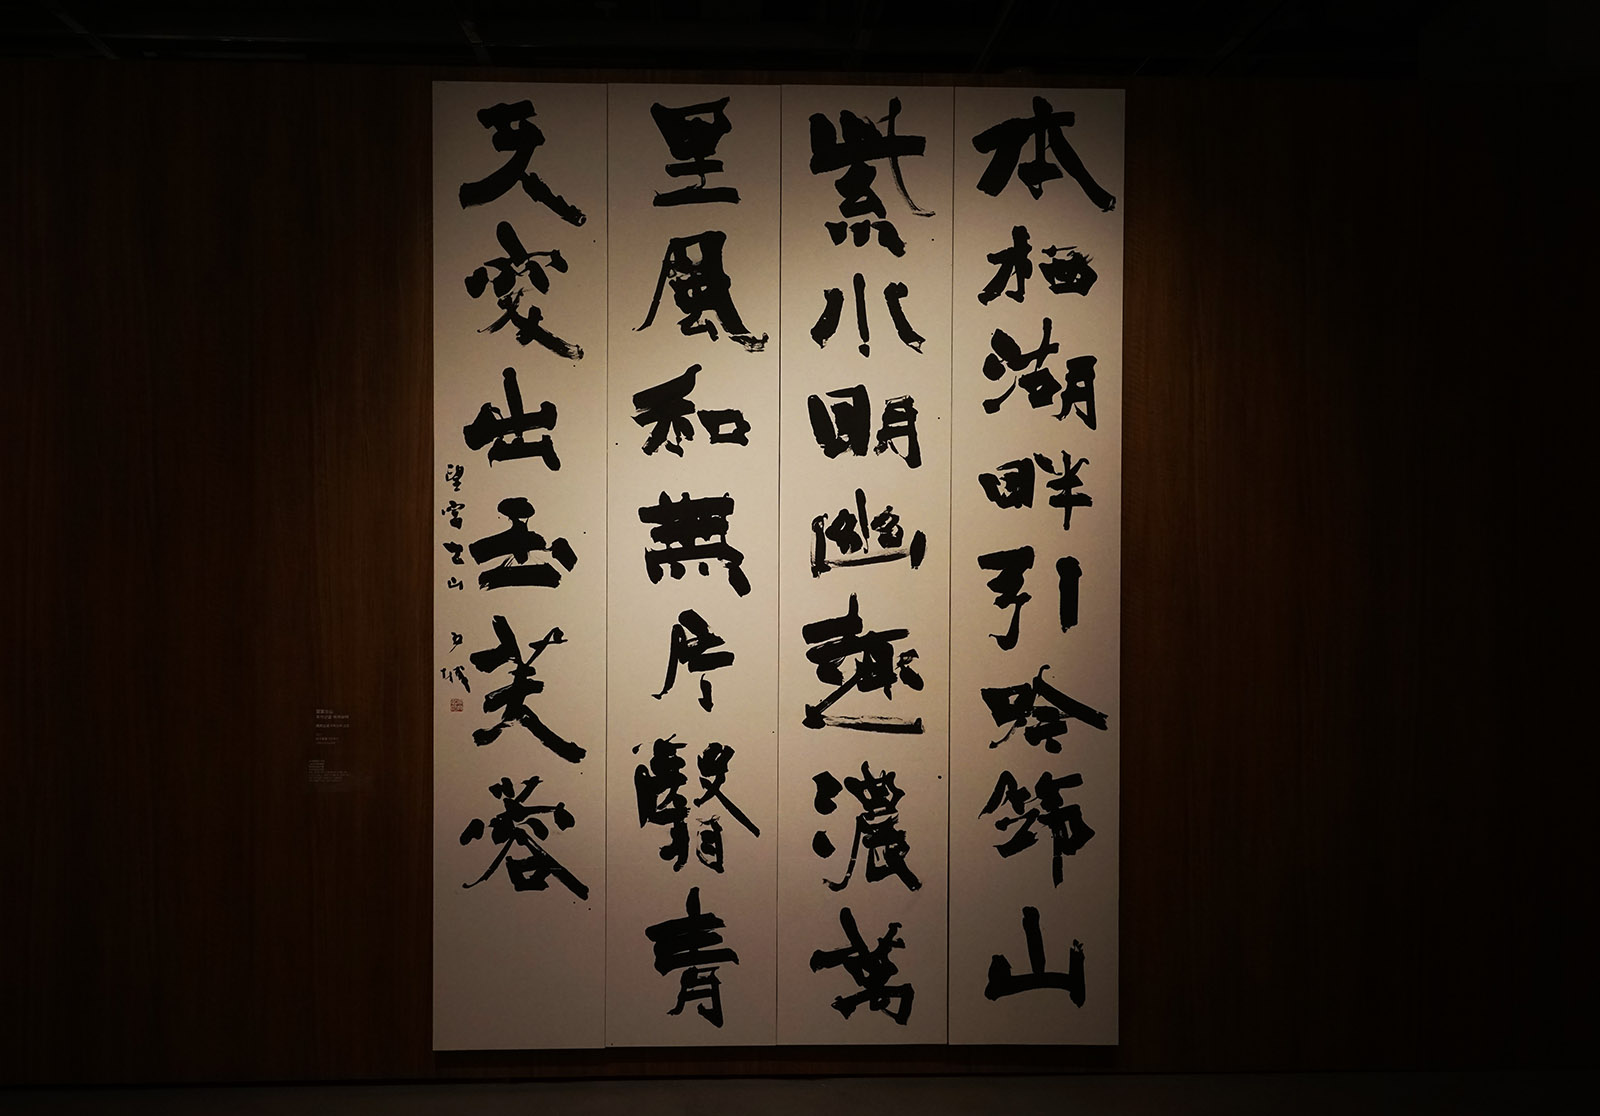 本栖湖畔引吟筇山
紫水明幽趣濃萬
里風和無片翳青
天突出玉芙蓉
望富士山